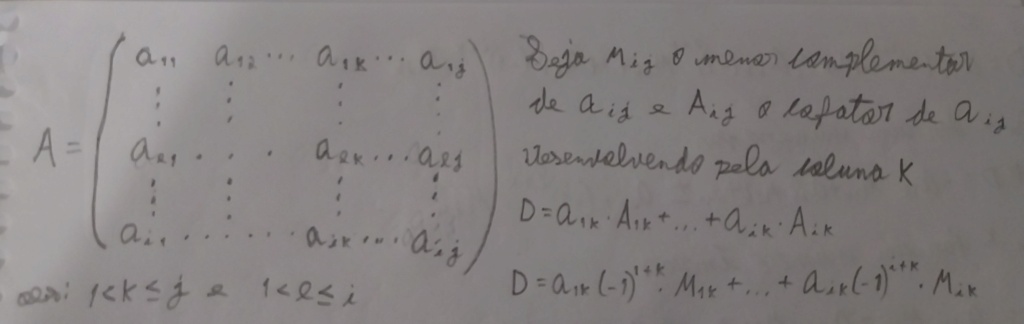 A = ( a₁₁ a₁₂ ⋯ a₁ₖ ⋯ a₁ⱼ
⋮ ⋮ ⋮ ⋮
aₑ₁ . . . aₑₖ ⋯ aₑⱼ
⋮ ⋮ ⋮ ⋮
aᵢ₁ ...... aᵢₖ ... aᵢⱼ )
1<K≤j e 1<e≤i
Seja Mij o menor complementar
de aij e Aij o cofator de aij
Desenvolvendo pela coluna K
D = a₁ₖ · A₁ₖ + ... + aᵢₖ · Aᵢₖ
D = a₁ₖ (-1)^1+K · M₁ₖ + ... + aᵢₖ (-1)^i+K · Mᵢₖ